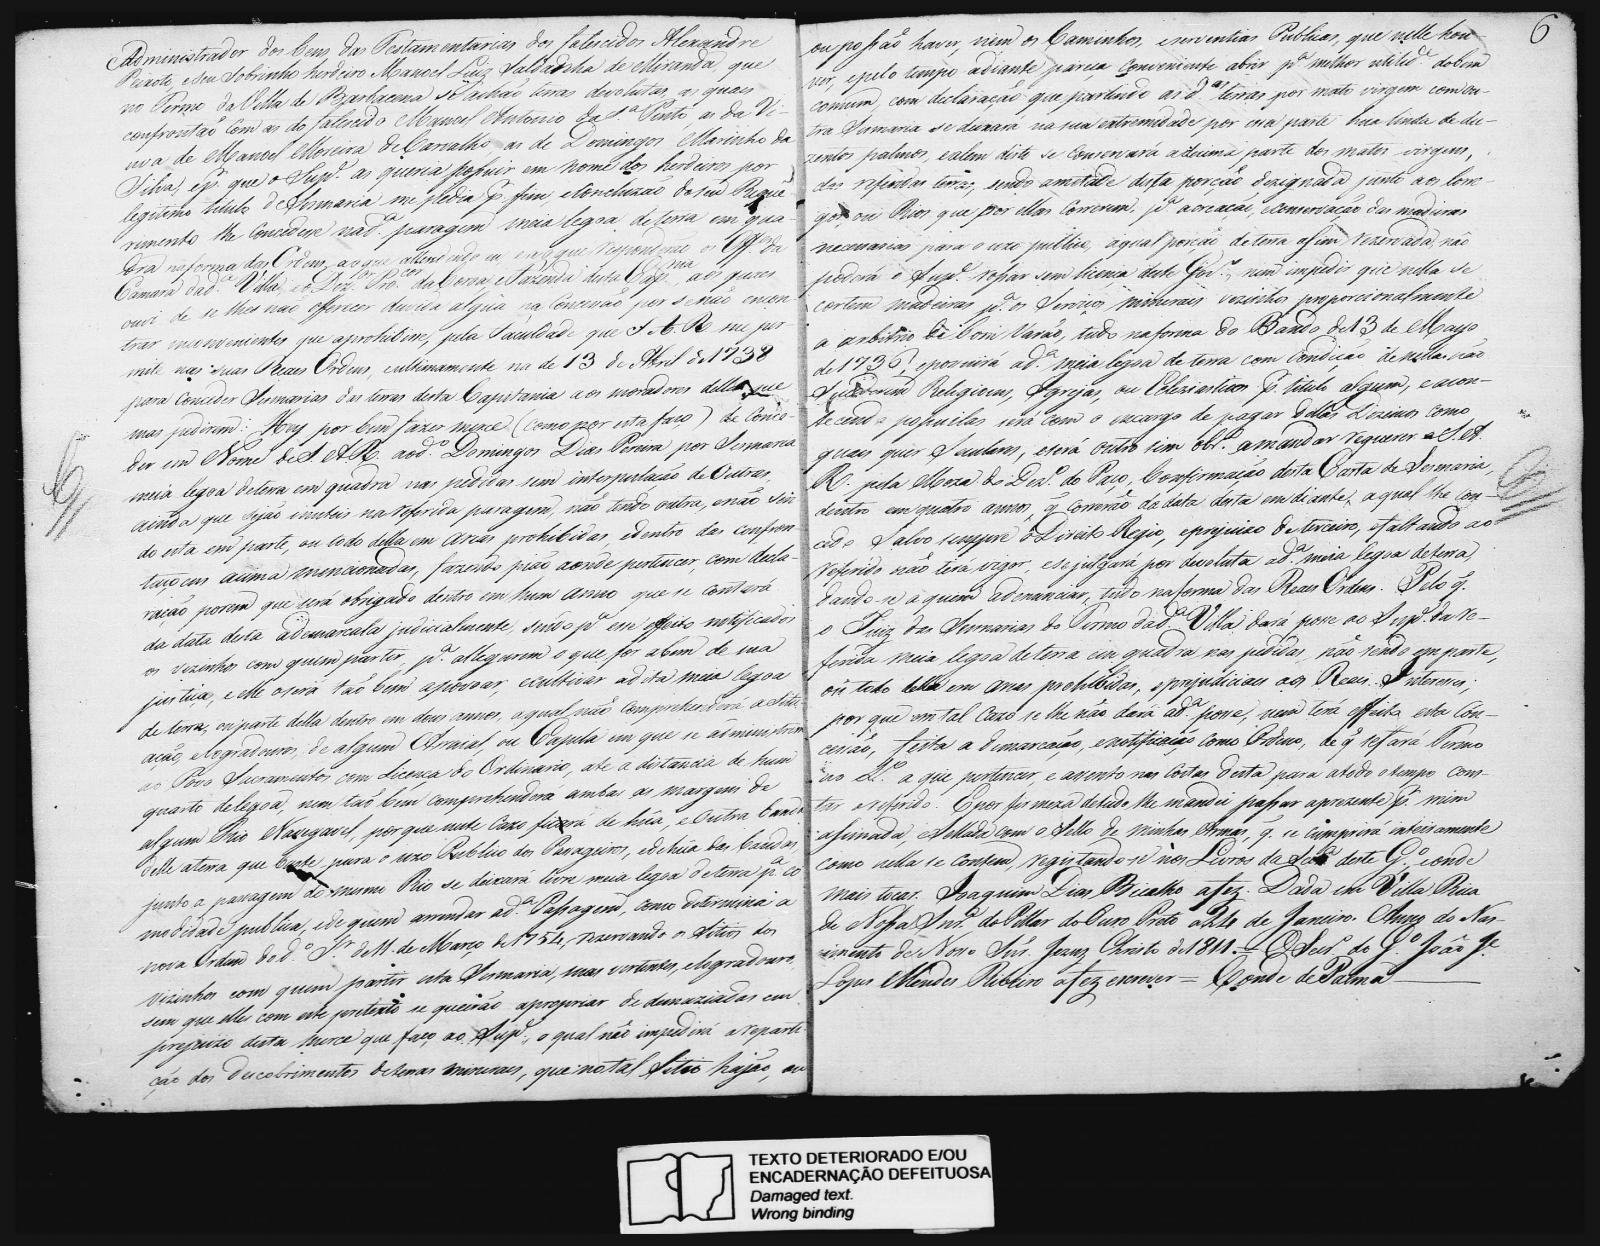 Administrador dos bens das Testamentarias dos falescidos Alexandre
e seu Sobrinho herdeiro Manoel Luiz Saldanha de Miranda que
no Termo da Villa de Barbacena se achão terras devolutas, as quaes
confrontão com as do falescido Manoel Antonio da S.ª Pinto as da Vi-
uva de Manoel Moreira de Carvalho as de Domingos Marinho da
Silva, e p.r que o Sup.e as queria possuir em nome dos herdeiros por
legitimo titulo de Sesmaria me pedia p.r fim, e concluzaõ do seu Reque
rimento lhe Concedese na d.ª paragem meia legoa de terra em qua-
dra na forma das Ordens, ao que attendendo eu, e ao que responderaõ os Off.es da
Camara da d.ª Villa, e o Dez.or Pro.cor da Coroa e Fazenda desta Cap.nia aos quaes
ouvi de se lhes naõ offerecer duvida algũa na Concessaõ por se naõ encon-
trar inconvenientes que a prohibisse, pela faculdade que S. A. R. me per
mite nas suas Reaes Ordens, e ultimamente na de 13 de Abril de 1738
para conceder Sesmarias das terras desta Capitania aos moradores della que
mas pedirem: Hey por bem fazer merce (como por esta faço) de Conce-
der em Nome de S. A. R. ao d.º Domingos Dias Pereira por Sesmaria
meia legoa de terra em quadra nas pedidas sem interpolaçaõ de Outras,
ainda que sejaõ inuteis na referida paragem, naõ tendo outra, e naõ sen
do esta em parte, ou todo della em areas prohibidas, e dentro das confron
taçoens acima mencionadas, fazendo piaõ aonde pertencer, com decla-
raçaõ porem que será obrigado dentro em hum anno que se contará
da data desta a demarcala judicialmente, sendo p.ª esse effeito notificados
os vezinhos com quem partir, p.ª allegarem o que for a bem de sua
justiça, e elle o será taõ bem a povoar, e cultivar a d.ta meia legoa
de terra, ou parte della dentro em dous annos, a qual naõ Comprehenderá a Situ
açaõ, e logradouros, de algum Arraial, ou Capella em que se administrem
ao Povo Sacramentos com Licença do Ordinario, ate a distancia de hum
quarto de legoa, nem taõ bem comprehenderá ambas as margens de
algum Rio Navegavel, porque neste cazo ficará de hũa, e Outra banda
delle a terra que baste para o uzo Publico dos Passageiros, e de hũa das bandas
junto a passagem do mesmo Rio se deixará livre meia legoa de terra p.ª co
modidade publica, e de quem arrendar a d.ª Passagem, como determina a
nova Ordem do d.º S.r de 11 de Março de 1754, rezervando os Sitios dos
vizinhos com quem partir esta Sesmaria, suas vertentes, e logradouros,
sem que elles com este pretexto se queiraõ apropriar de demaziadas em
prejuizo desta merce que faço ao Sup.e, o qual naõ impedirá a reparti-
çaõ dos descobrimentos de terras mineraes, que no tal Sitio hajaõ, ou
6
ou possaõ haver, nem os Caminhos, e serventias Publicas, que nelle hou-
ver, e pelo tempo adiante pareça conveniente abrir p.ª milhor utilid.e do bem
comum, com declaraçaõ que partindo as d.as terras por mato virgem com ou-
tra Sesmaria se deixará na sua extremidade por essa parte hua linda de du-
zentos palmos, e alem disto se Conservará a decima parte dos matos virgens,
das referidas terras, sendo ametade desta porçaõ dezignada junto aos Corre-
gos, ou Rios que por ellas Correrem, p.ª a creaçaõ, e conservaçaõ das madeiras
necessarias para o uzo publico, a qual porcaõ de terra assim rezervada, naõ
poderá o Sup.e roçar sem licença deste Gov.º, nem impedir que nella se
cortem madeiras p.ª os Serviços mineraes vezinhos proporcionalmente
a arbitrio de bom Varaõ, tudo na forma do Bando de 13 de Mayo
de 1736, e possuirá a d.ª meia legoa de terra com condiçaõ de nella naõ
Sucederem Religioens, Igrejas, ou Ecleziasticos p.r titulo algum, e acon-
tecendo possuilas será com o encargo de pagar dellas Dizimos como
quaes quer Seculares, e será outro sim obr.º a mandar requerer a S. A.
R. pela Meza do Dez.º do Paço, Confirmaçaõ desta Carta de Sesmaria,
dentro em quatro annos, q̃ Correraõ da data desta em diante, a qual lhe con-
cedo Salvo sempre o Direito Regio, e prejuizo de terceiro, e faltando ao
referido naõ terá vigor, e se julgará por devoluta a d.ª meia legoa de terra,
dando-se a quem a denunciar, tudo na forma das Reaes Ordens. Pelo q̃.
o Juiz das Sesmarias do Termo da d.ª Villa dará posse ao Sup.e da re-
ferida meia legoa de terra em quadra nas pedidas, naõ sendo em parte,
ou todo della em areas prohibidas, e prejudiciaes aos Reaes Interesses,
por que em tal Cazo se lhe naõ dará a d.ª posse, nem terá effeito esta Con-
cessaõ, feita a demarcaçaõ, e notificaçaõ como Ordeno, de q̃ se fará Termo
no L.º a que pertencer, e assento nas Costas desta para a todo o tempo cons-
tar o referido. E por firmeza de tudo lhe mandei passar a prezente p.r mim
assinada, e Sellada com o Sello de minhas Armas, q̃. se cumprirá inteiramente
como nella se contem, registando-se nos Livros da Sec.ª deste G.º, e onde
mais tocar. Joaquim Dias Bicalho a fez. Dada em Villa Rica
de Nossa Snr.ª do Pillar do Ouro Preto a 24 de Janeiro. Anno do Nas-
cimento de Nosso Snr. Jezuz Christo de 1811. = O Secr.º do G.º João J.e
Lopes Mendes Ribeiro a fez escrever = Conde de Palma
TEXTO DETERIORADO E/OU
ENCADERNAÇÃO DEFEITUOSA
Damaged text.
Wrong binding